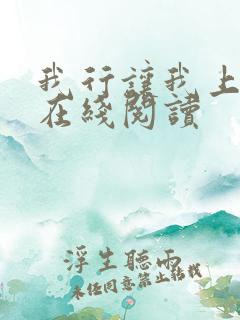 我行讓我上
在綫閱讀
浮生聽雨
未经同意禁止转载